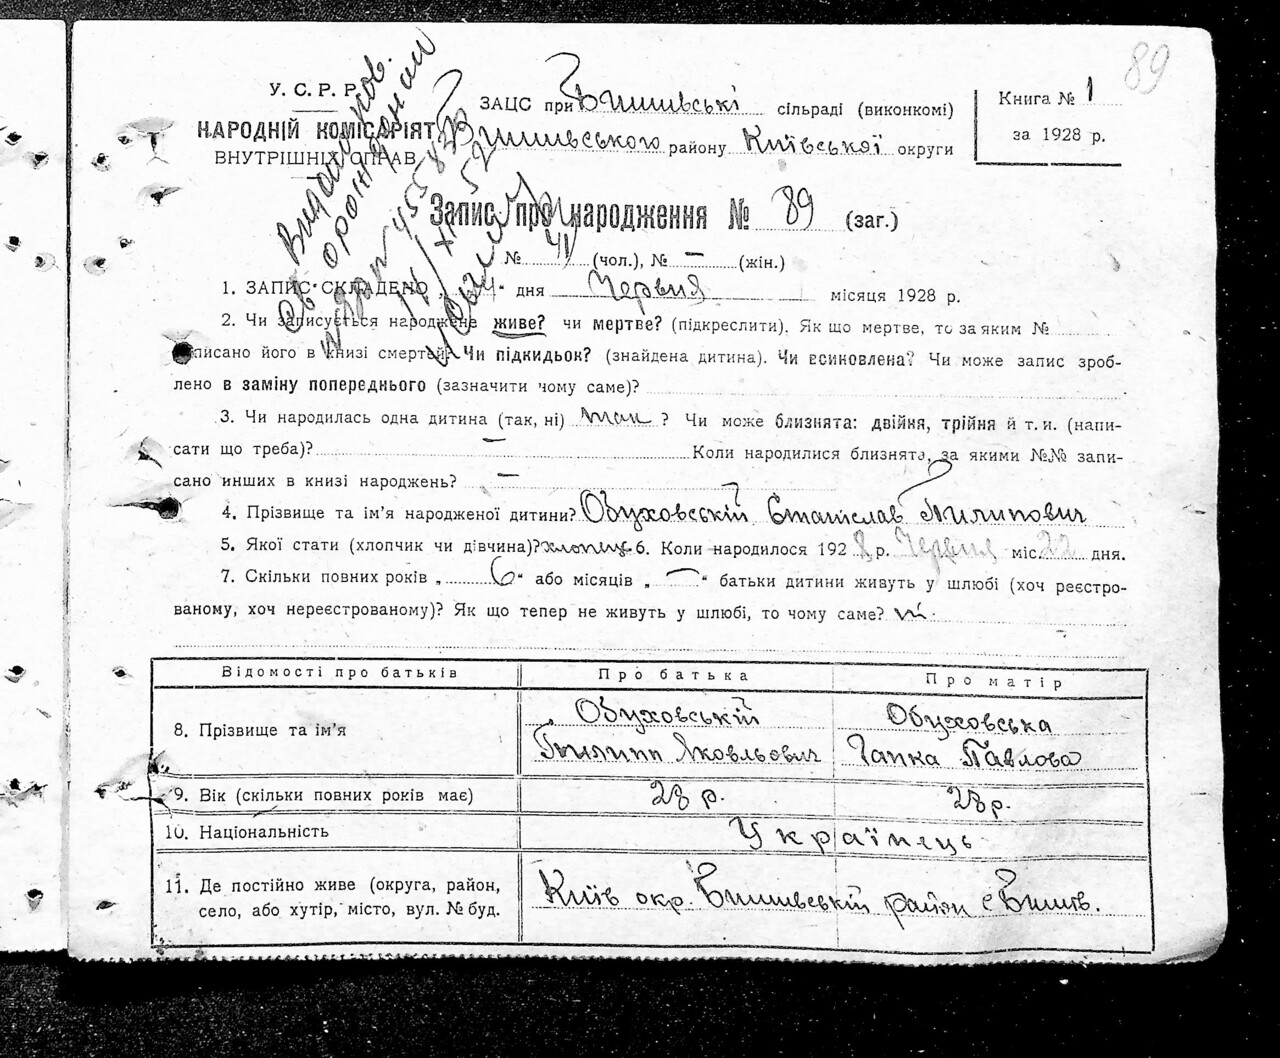 89
У. С. Р. Р.
НАРОДНІЙ КОМІСАРІЯТ
ВНУТРІШНІХ СПРАВ
ЗАЦС при Бишівські сільраді (виконкомі)
Бишівського району Київської округи
Книга № 1
за 1928 р.
Запис про народження № 89 (заг.)
№ 41 (чол.), № — (жін.)
1. ЗАПИС СКЛАДЕНО „ “ дня Червня місяця 1928 р.
2. Чи записується народжене живе? чи мертве? (підкреслити). Як що мертве, то за яким №
записано його в книзі смертей? Чи підкидьок? (знайдена дитина). Чи всиновлена? Чи може запис зроб-
лено в заміну попереднього (зазначити чому саме)?
3. Чи народилась одна дитина (так, ні) так ? Чи може близнята: двійня, трійня й т. и. (напи-
сати що треба)? — Коли народилися близнята, за якими №№ запи-
сано инших в книзі народжень? —
4. Прізвище та ім'я народженої дитини? Обуховській Станіслав Пилипович
5. Якої стати (хлопчик чи дівчина)? хлопець 6. Коли народилося 1928 р. Червня міс. 22 дня.
7. Скільки повних років „ 6 “ або місяців „ — “ батьки дитини живуть у шлюбі (хоч реєстро-
ваному, хоч нереєстрованому)? Як що тепер не живуть у шлюбі, то чому саме?
Відомості про батьків Про батька Про матір
8. Прізвище та ім'я Обуховській Обуховська
Пилипп Яковльович Гапка Павлова
9. Вік (скільки повних років має) 28 р. 28 р.
10. Національність Українець
11. Де постійно живе (округа, район,
село, або хутір, місто, вул. № буд.
Київ окр. Бишівській район с Бишів.